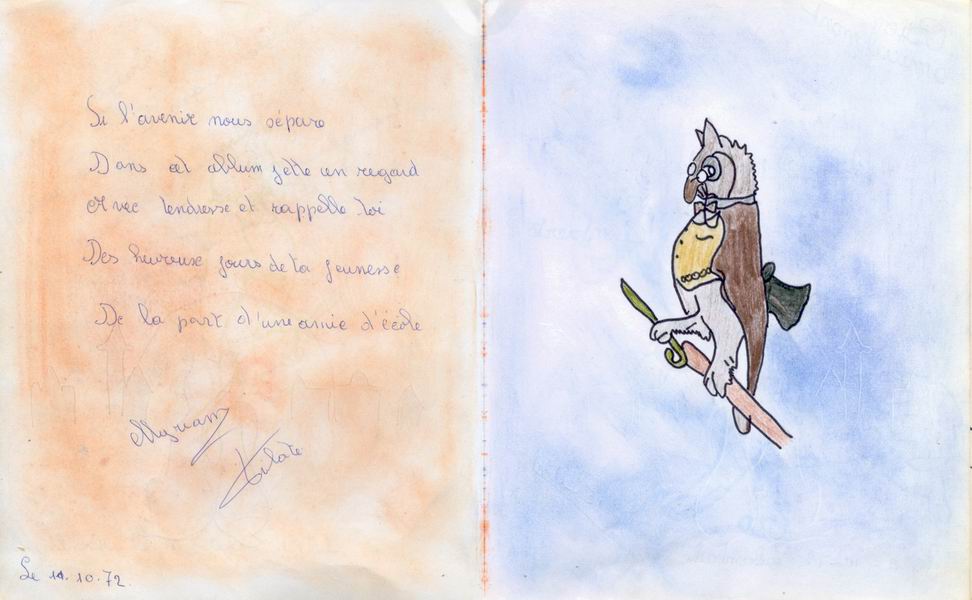 Si l'avenir nous sépare
Dans cet album jette un regard
Avec tendresse et rappelle-toi
Des heureux jours de ta jeunesse
De la part d'une amie d'école
Myriam
Le 14.10.72